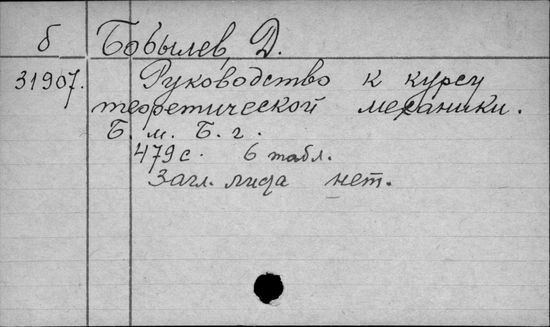 б Бобылев, Д.
31907. Руководство к курсу
теоретической механики.
Б. м. Б. г.
479 с. 6 табл.
Загл. лида нет.